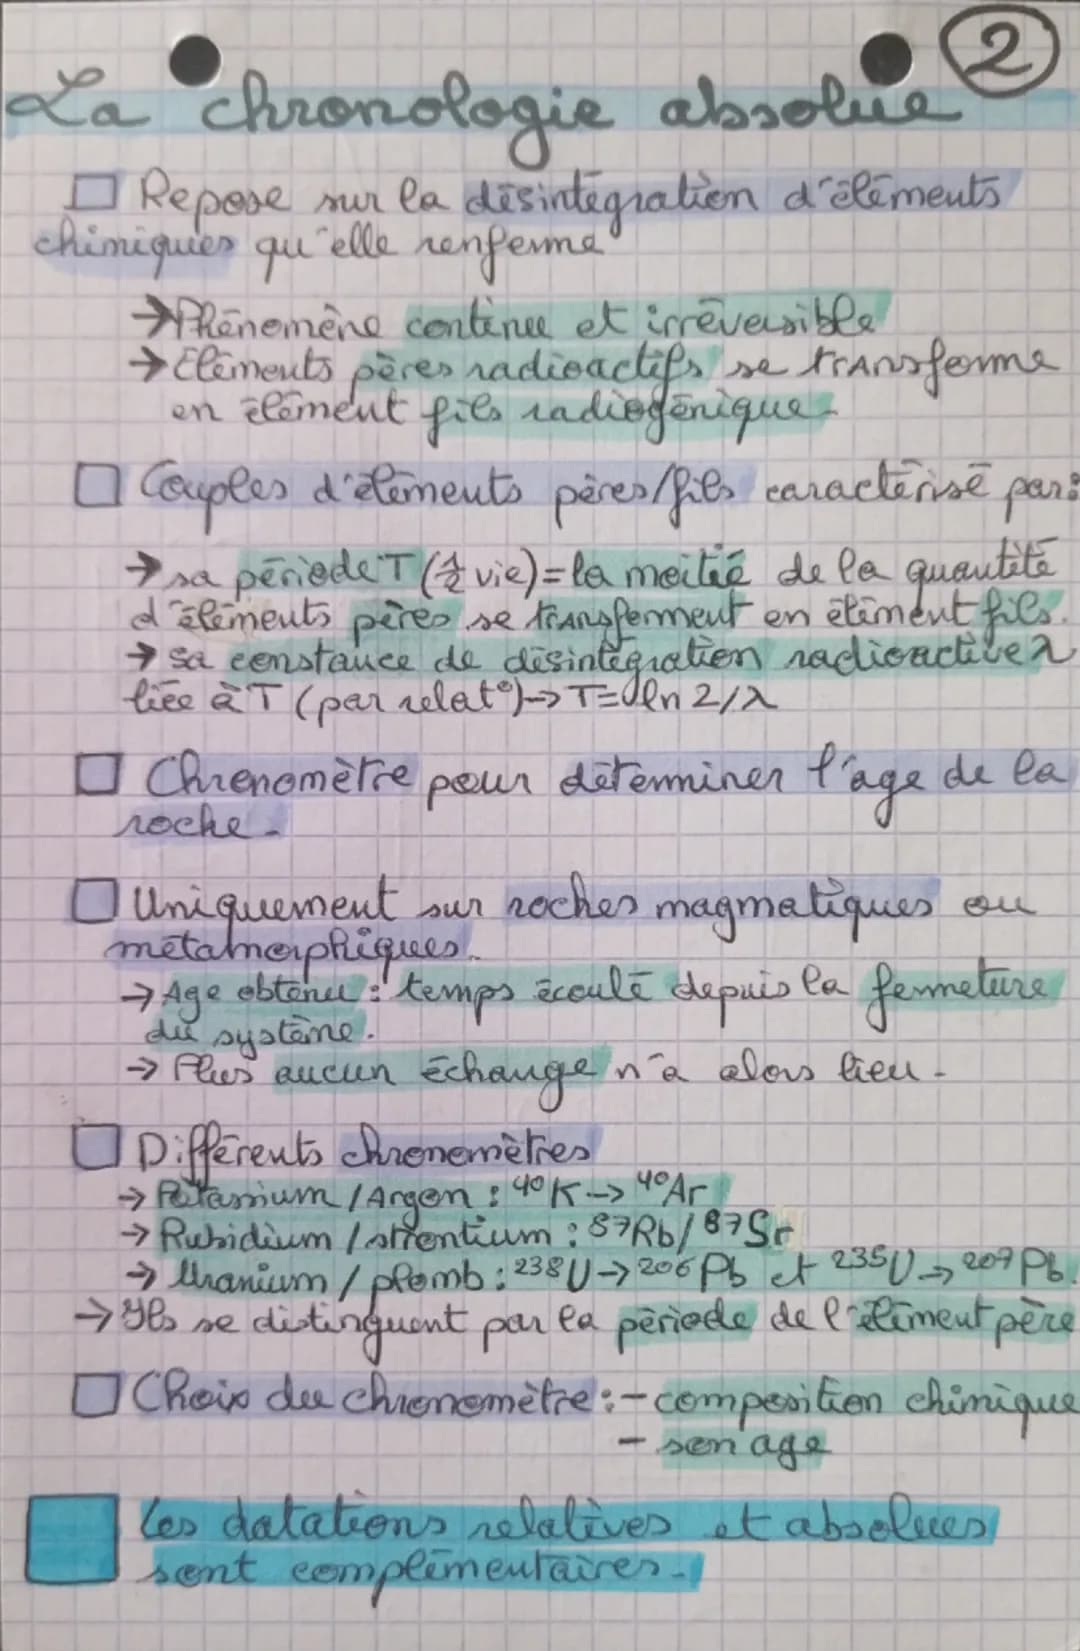 2
La chronologie absolue
□ Repose sur la désintégration d'éléments
chimiques qu'elle renferme
→ Phénomène continue et irréversible
→ Eléments pères radioactifs se transforme
en élément fils radiogénique.
□ Couples d'éléments pères/fils caractérisé par:
→ sa période T (½ vie) = la moitié de la quantité
d'éléments pères se transforment en élément fils.
→ sa constance de désintégration radioactive λ
liée à T (par relat°) → T = ln 2/λ
□ Chronomètre pour déterminer l'age de la
roche.
□ Uniquement sur roches magmatiques ou
métamorphiques.
→ Age obtenu : temps écoulé depuis la fermeture
du système.
→ Plus aucun échange n'a alors lieu.
□ Différents chronomètres
→ Potassium / Argon : ⁴⁰K → ⁴⁰Ar
→ Rubidium / strontium : 87Rb / 87Sr
→ Uranium / plomb : ²³⁸U → ²⁰⁶Pb et ²³⁵U → ²⁰⁷Pb.
→ Ils se distinguent par la période de l'élément père
□ Choix du chronomètre : - composition chimique
- son age
Les datations relatives et absolues
sont complémentaires.